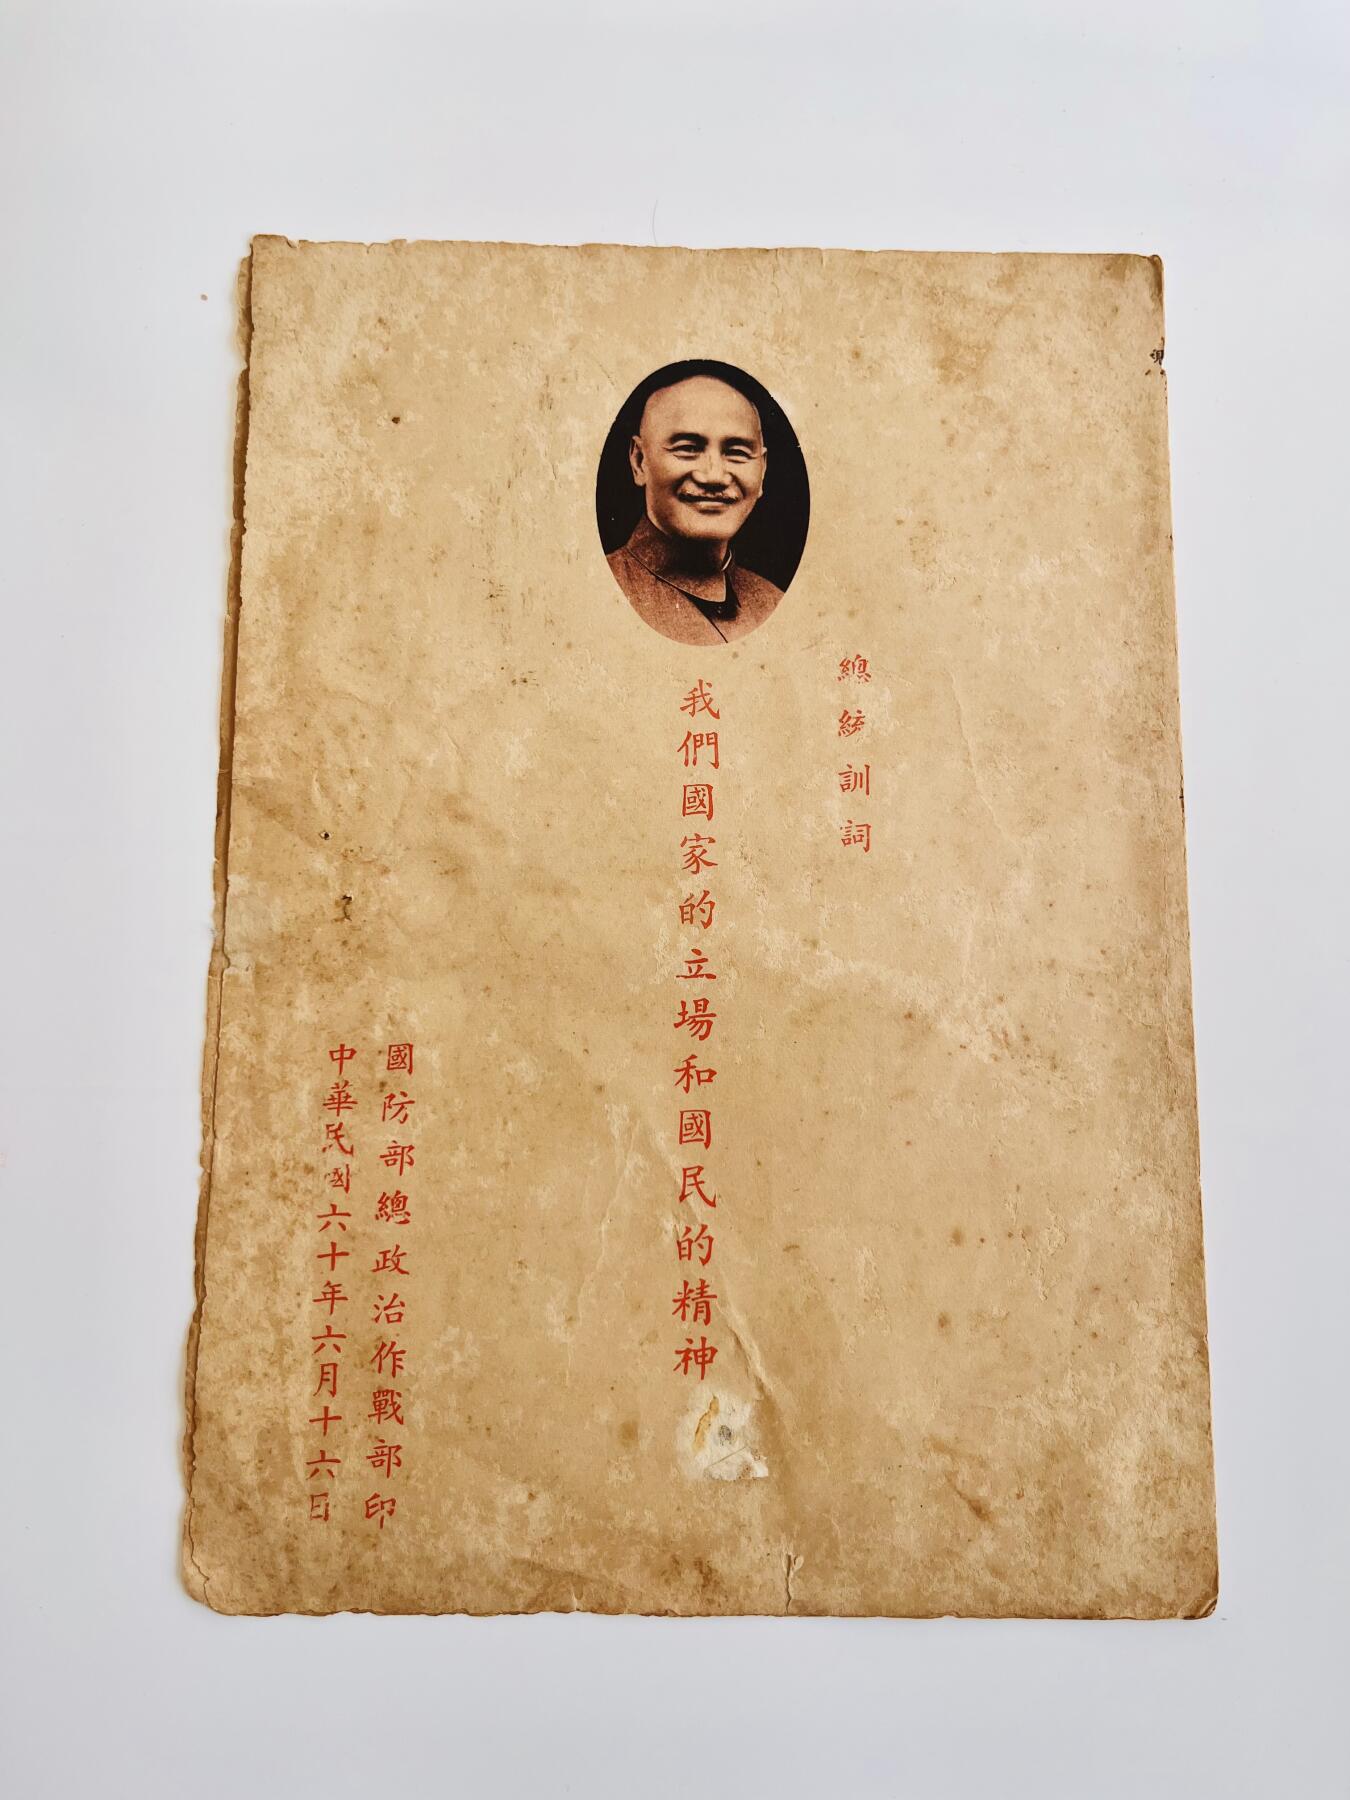 總統訓詞
我們國家的立場和國民的精神
國防部總政治作戰部印
中華民國六十年六月十六日